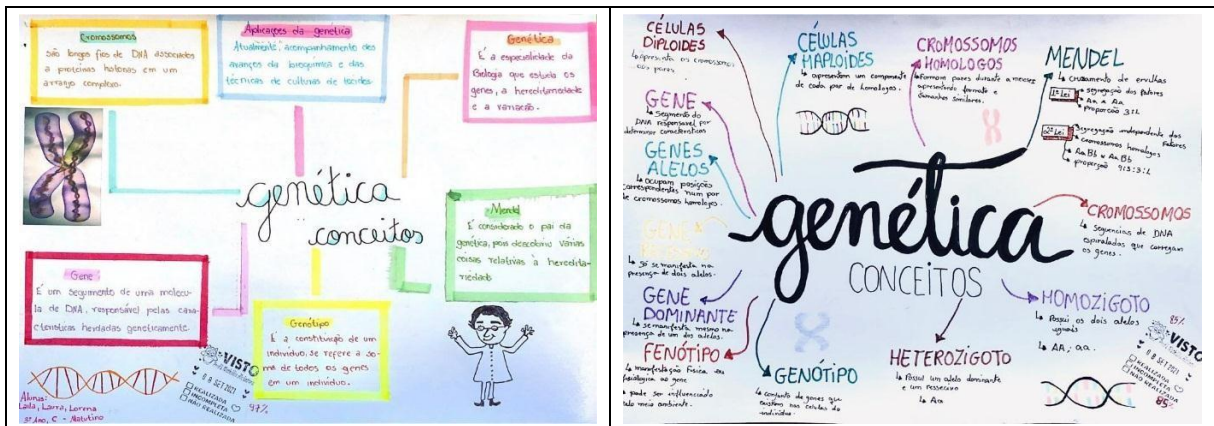 Cromossomos
São longos fios de DNA associados
a proteínas histonas em um
arranjo complexo.
Aplicações da genética
Atualmente, acompanhamento dos
avanços da bioquímica e das
técnicas de culturas de tecidos
Genética
É a especialidade da
Biologia que estuda os
genes, a hereditariedade
e a variação.
genética
conceitos
Mendel
É considerado o pai da
genética, pois descobriu várias
coisas relativas à heredita-
riedade
Gene
É um seguimento de uma molécu-
la de DNA, responsável pelas cara-
cterísticas herdadas geneticamente.
Genótipo
É a constituição de um
indivíduo, se refere a so-
ma de todos os genes
em um indivíduo.
VISTO
08 SET 2021
REALIZADA
INCOMPLETA
NÃO REALIZADA
97%
Alunas:
Laila, Larra, Lorena
3º Ano, C - Matutino
CÉLULAS
DIPLOIDES
apresenta os cromossomos
aos pares
CÉLULAS
HAPLOIDES
apresentam um componente
de cada par de homólogos.
CROMOSSOMOS
HOMOLOGOS
Formam pares durante a meiose
apresentando formato e
tamanhos similares.
MENDEL
Cruzamento de ervilhas
1ª Lei
segregação dos fatores
Aa x Aa
proporção 3:1
2ª Lei
Segregação independente dos
fatores
cromossomos homologos
AaBb x AaBb
proporção 9:3:3:1
GENE
Segmento do
DNA responsável por
determinar características
GENES
ALELOS
ocupam posições
correspondentes num par
de cromossomos homologos.
GENE
RECESSIVO
Só se manifesta na
presença de dois alelos.
GENE
DOMINANTE
se manifesta mesmo na
presença de um dos alelos.
FENÓTIPO
manifestação física ou
fisiológica do gene
pode ser influenciado
pelo meio ambiente.
genética
CONCEITOS
CROMOSSOMOS
sequencias de DNA
espiralados que carregam
os genes.
HOMOZIGOTO
Possui os dois alelos
iguais
AA; aa.
HETEROZIGOTO
Possui um alelo dominante
e um recessivo
Aa
GENÓTIPO
conjunto de genes que
existem nas células do
indivíduo.
85%
VISTO
08 SET 2021
REALIZADA
INCOMPLETA
NÃO REALIZADA
85%